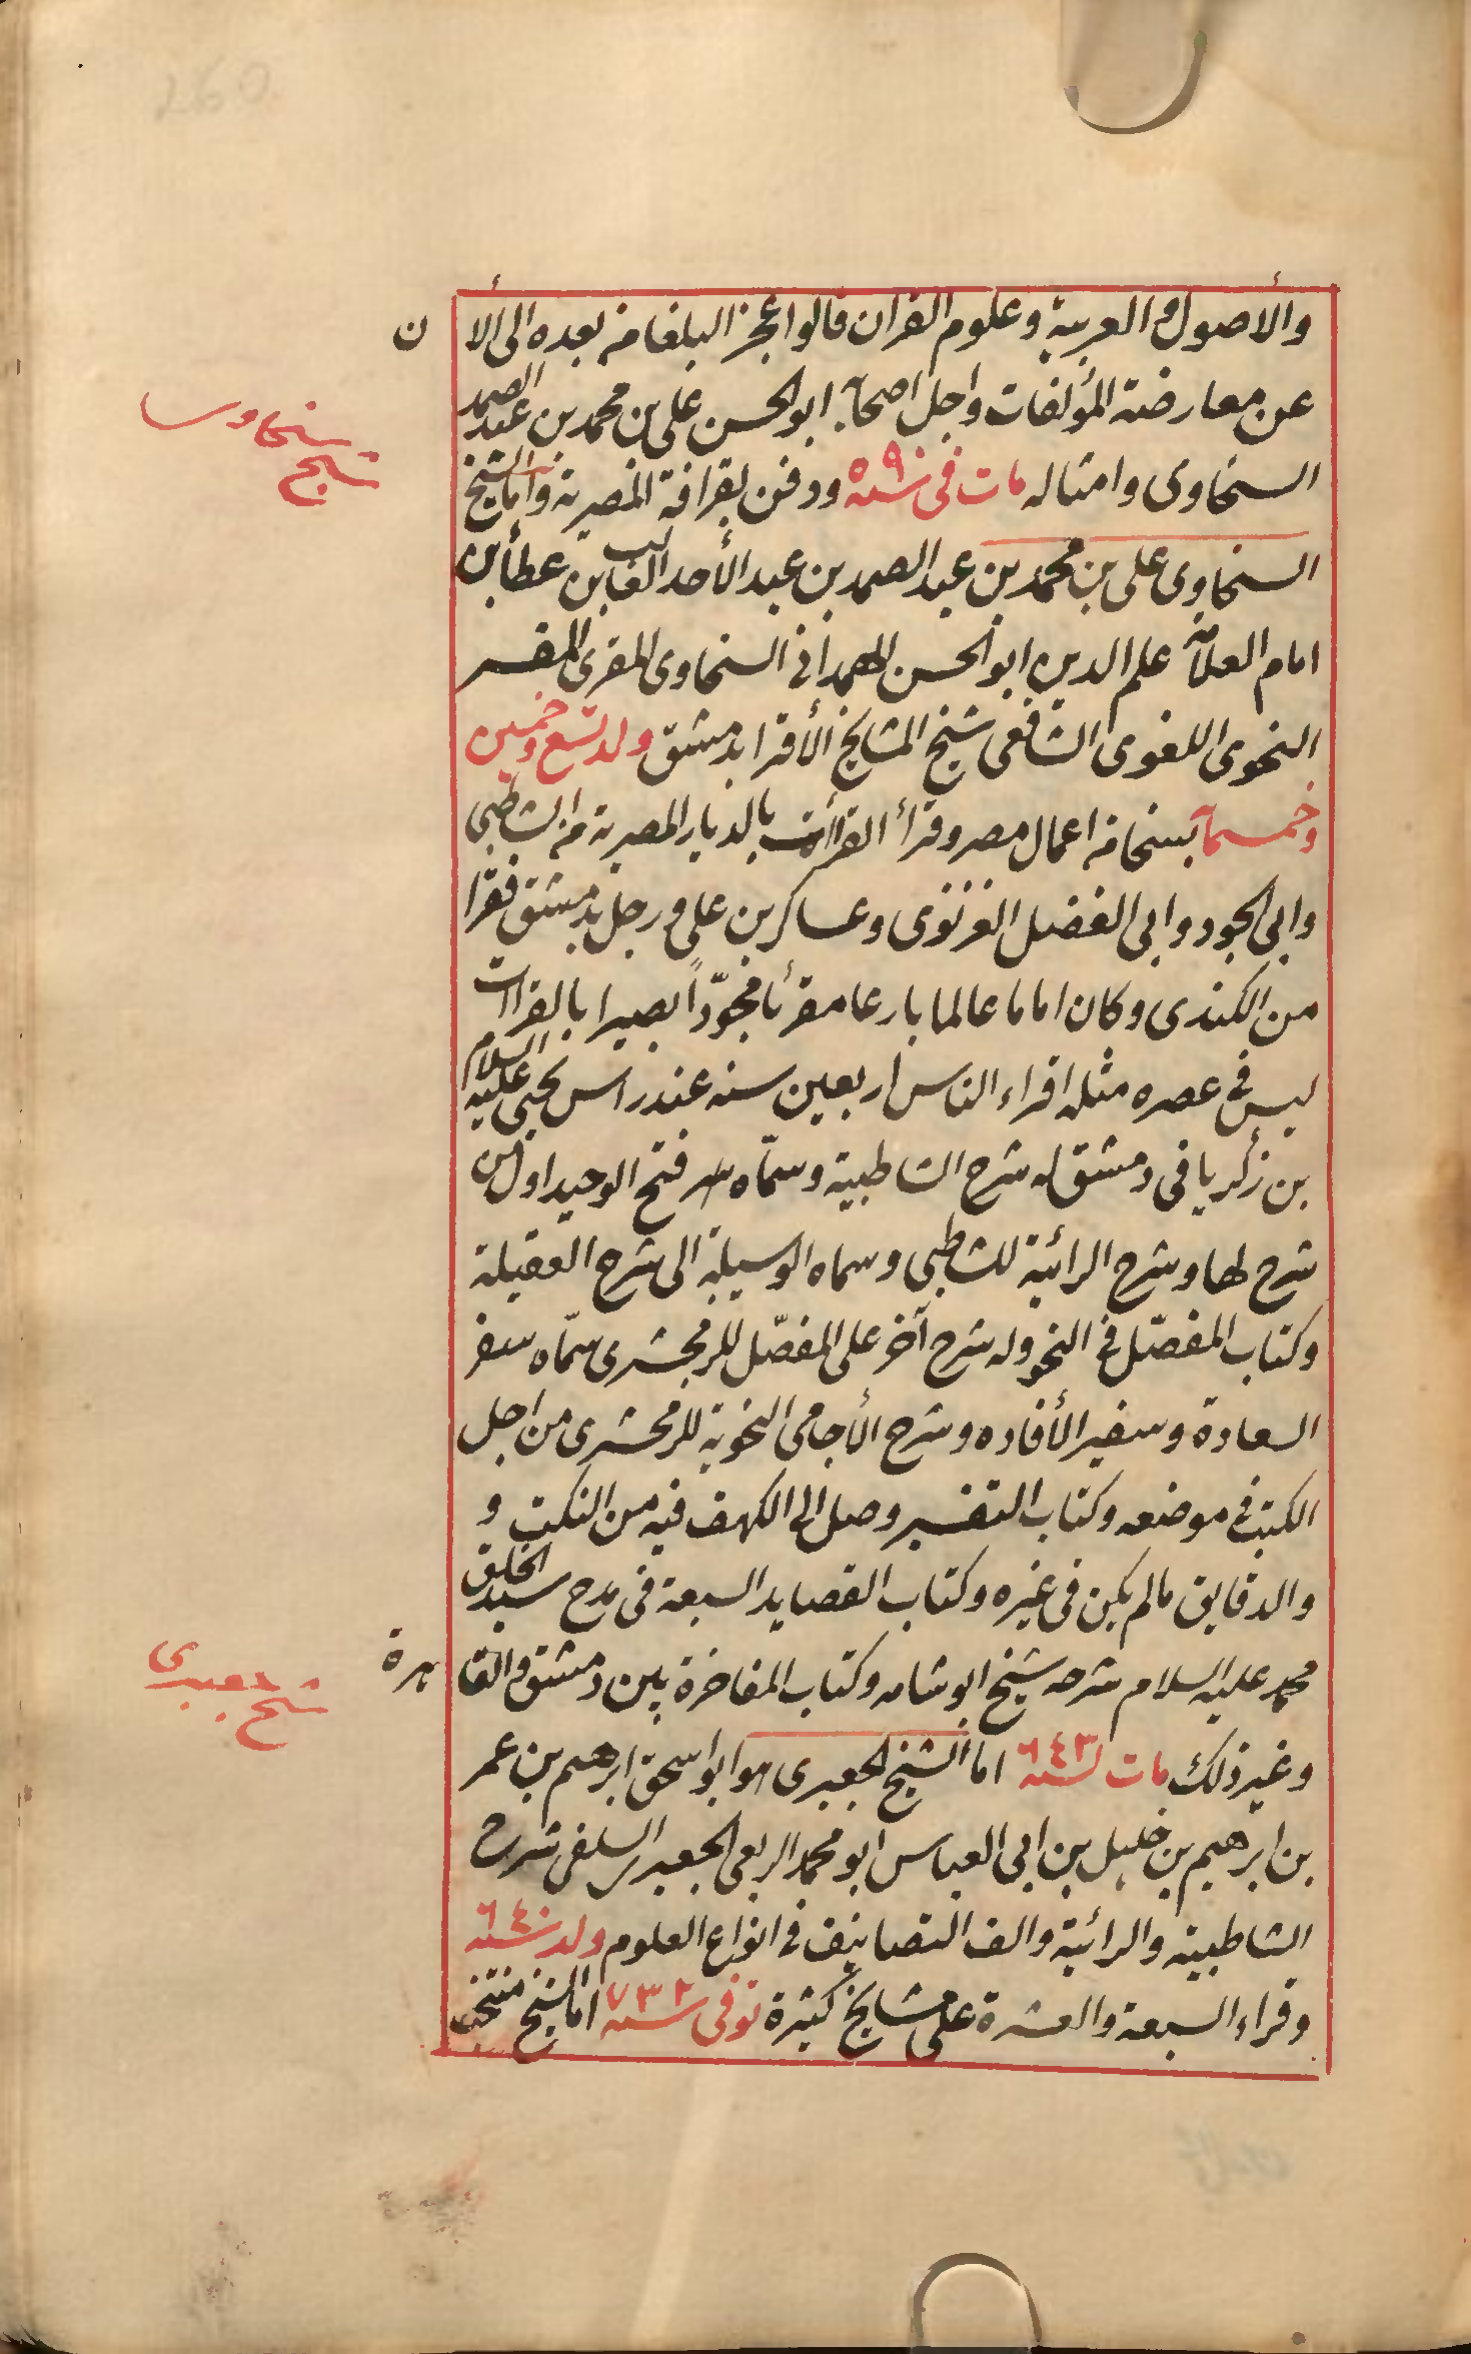 260
والأصول والعربية وعلوم القران قالوا عجز البلغا من بعده الى الأن
عن معارضته المؤلفات واجل اصحابه ابو الحسن على بن محمد بن عبد الصمد
السخاوى وامثاله مات فى سنة ٥٩٠ ودفن بقرافة المصرية واما الشيخ
شيخ سخاوى
السخاوى على بن محمد بن عبد الصمد بن عبد الأحد الغالب بن عطأبن
امام العلامة علم الدين ابو الحسن الهمدانى السخاوى المقرى المفسر
النحوى اللغوى الشافعى شيخ المشايخ الأقرا بدمشق ولد تسع وخمسين
وخمسمأ بسخا من اعمال مصر وقرأ القرأات بالديار المصرية من الشاطبى
وابى الجود وابى الفضل الغزنوى وعساكر بن على ورجل بدمشق فقرا
من الكندى وكان اماما عالما بارعا مقرئا مجوّداً بصيرا بالقراات
ليس فى عصره مثله اقراء الناس اربعين سنه عند راس يحيى عليه السلام
بن زكريا فى دمشق له شرح الشاطبية وسمّاه فتح الوحيد اول من
شرح لها وشرح الرائية للشاطبى وسماه الوسيلة الى شرح العقيلة
وكتاب المفضّل فى النحو وله شرح آخر على المفصّل للزمخشرى سمّاه سفر
السعادة وسفير الأفاده وشرح الأجاحى النحوية للزمخشرى من اجل
الكتب فى موضعه وكتاب التفسير وصل الى الكهف فيه من النكت و
والدقايق مالم يكن فى غيره وكتاب القصايد السبعة فى مدح سيد الخلق
محمد عليه السلام شرحه شيخ ابو شامه وكتاب المفاخرة بين دمشق والقاهرة
شيخ جعبرى
وغير ذلك مات سنة ٦٤٣ اما الشيخ الجعبرى هو ابو اسحق ابرهيم بن عمر
بن ابرهيم بن خليل بن ابى العباس ابو محمد الربعى الجعبرى السلفى شرح
الشاطبية والرائية والف التصانيف فى انواع العلوم ولد سنة ٦٤٠
وقراء السبعة والعشرة على مشايخ كثيرة توفى سنة ٧٣٢ اما الشيخ منتخب